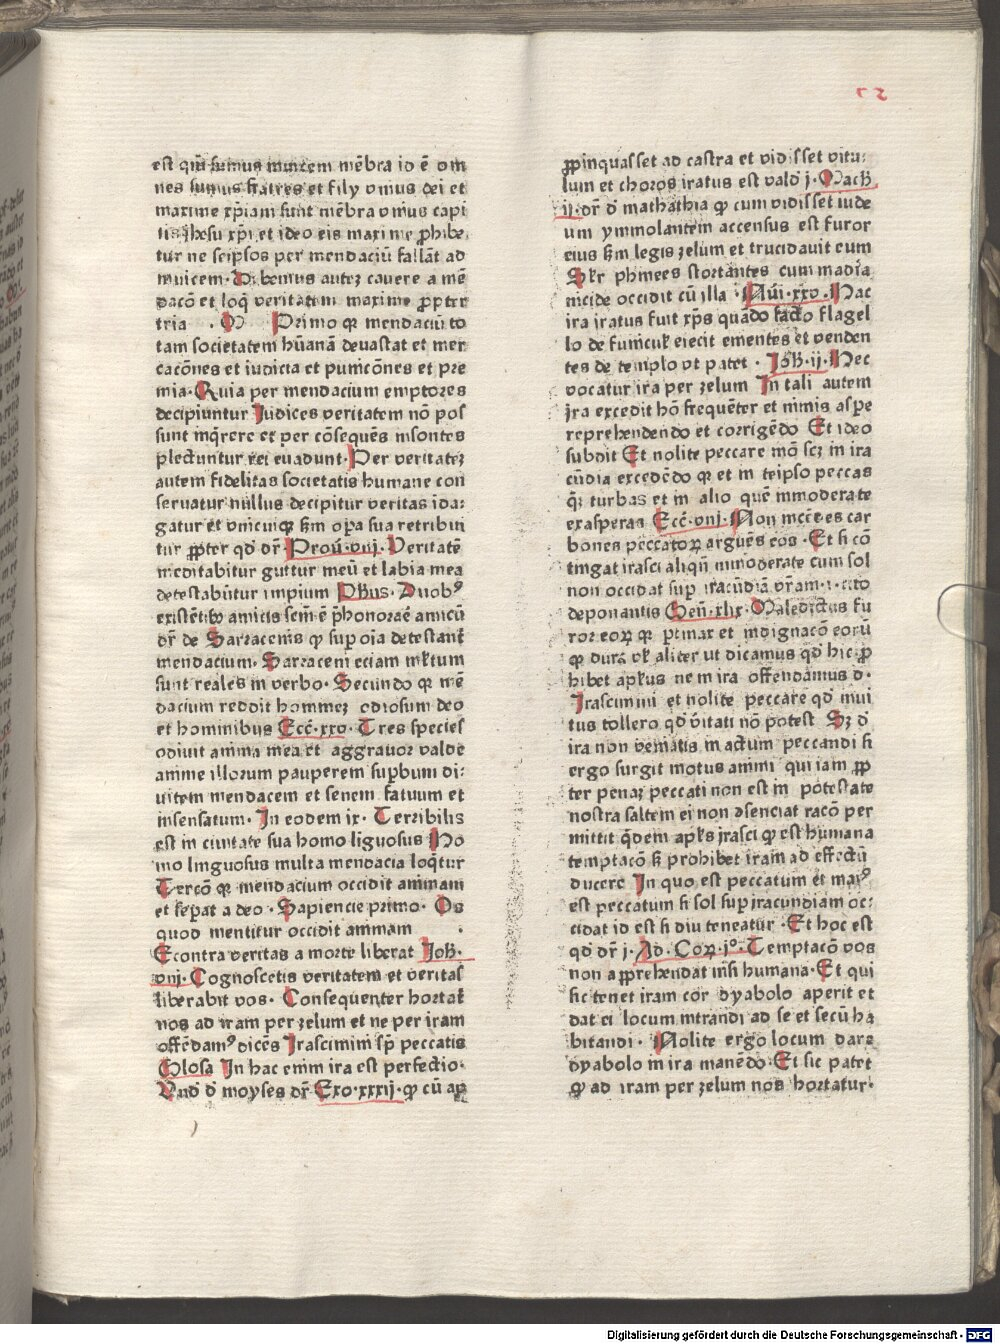 52
est qm̄ sumus inuicem mēbra id ē om
nes sumus fratres et filij vnius dei et
maxime xp̄iani sunt mēbra vnius capi
tis ihesu xp̄i et ideo eis maxime ꝓhibe
tur ne seipsos per mendaciū fallāt ad
inuicem· Debemus autez cauere a mē
dacō et loq̄ veritatem maxime ꝓpter
tria · Primo qꝛ mendaciū to
tam societatem hūanā deuastat et mer
cacōnes et iudicia et punicōnes et pre
mia· Quia per mendacium emptores
decipiuntur Iudices veritatem nō pos
sunt inq̄rere et per cōsequēs insontes
plectuntur rei euadunt· Per veritatez
autem fidelitas societatis humane con
seruatur nullus decipitur veritas ida·
gatur et vnicuiqꝫ sm̄ oꝑa sua retribui
tur ꝓpter qd̄ dr̄· Prou̅·viij· Veritatē
meditabitur guttur meū et labia mea
detestabūtur impium Ph̄us· Duobꝰ
existētibꝫ amicis scm̄ ē p̄honorac̄ amicū
dr̄ de Sarracenis qꝫ sup oīa detestant̄
mendacium· Sarraceni eciam ml̄tum
sunt reales in verbo· Secundo qꝛ mē
dacium reddit hominez odiosum deo
et hominibus Ecc̄·xxv· Tres species
odiuit anima mea et aggrauor valde
anime illorum pauperem suꝑbum di·
uitem mendacem et senem fatuum et
insensatum· In eodem ix· Terribilis
est in ciuitate sua homo liguosus Ho
mo linguosus multa mendacia loq̄tur
Tercō qꝛ mendacium occidit animam
et seꝑat a deo· Sapiencie primo· Os
quod mentitur occidit animam ·
Econtra veritas a morte liberat Joh̄·
viij· Cognoscetis veritatem et veritas
liberabit vos· Consequenter hortat̄
nos ad iram per zelum et ne per iram
offēdamꝰ dicēs Irascimini sꝫ peccatis
Glosa In hac enim ira est perfectio·
Vnd̄ d̄ moyses dr̄ Exo·xxxij· qꝫ cū aꝓ
ꝓpinquasset ad castra et vidisset vitu·
lum et choros iratus est vald̄ j· Mach̄
ij· dr̄ d̄ mathathia qꝫ cum vidisset iude
um ymmolantem accensus est furor
eius sm̄ legis zelum et trucidauit eum
Sl̄r phinees scortantes cum madīa
nicide occidit cū illa · Nūi·xxv· Hac
ira iratus fuit xp̄s quādo facto flagel
lo de funicul̄ eiecit ementes et venden
tes de templo vt patet · Joh̄·ij· Hec
vocatur ira per zelum In tali autem
jra excedit hō frequēter et nimis aspe
reprehendendo et corrigēdo Et ideo
subdit Et nolite peccare mō scz in ira
cūdia excedēdo qꝛ et in teipso peccas
q̄ turbas et in alio quē inmoderate
exasperas Ecc̄·viij· Non incēdes car
bones peccatoꝝ arguēs eos · Et si cō
tingat irasci aliqn̄ inmoderate cum sol
non occidat suꝑ iracūdiā vr̄am·i· cito
deponantis Gen̄·xlix· Maledictus fu
ror eoꝝ qꝛ ꝑtinax et indignacō eorū
qꝛ dura vl̄ aliter ut dicamus qd̄ hic ꝓ
hibet apl̄us ne in ira offendamus d·
Irascimini et nolite peccare qd̄ mui
tus tollero qd̄ v̄itati nō potest Sꝫ d̄
ira non veniatis in actum peccandi si
ergo surgit motus animi qui iam ꝓp
ter penaz peccati non est in potestate
nostra saltem ei non ↄsenciat racō per
mittit q̄dem apl̄s jrasci qꝫ est humana
temptacō sꝫ prohibet iram ad effectū
ducere In quo est peccatum et maiꝰ
est peccatum si sol suꝑ jracundiam oc·
cidat id est si diu teneatur · Et hoc est
qd̄ dr̄ j· Ad· Coꝝ·jº· Temptacō vos
non apprehendat nisi humana· Et qui
sic tenet iram cor dyabolo aperit et
dat ei locum intrandi ad se et secū ha
bitandi · Nolite ergo locum dare
dyabolo in ira manēdo· Et sic patet
qꝫ ad iram per zelum nos hortatur·
Digitalisierung gefördert durch die Deutsche Forschungsgemeinschaft - DFG